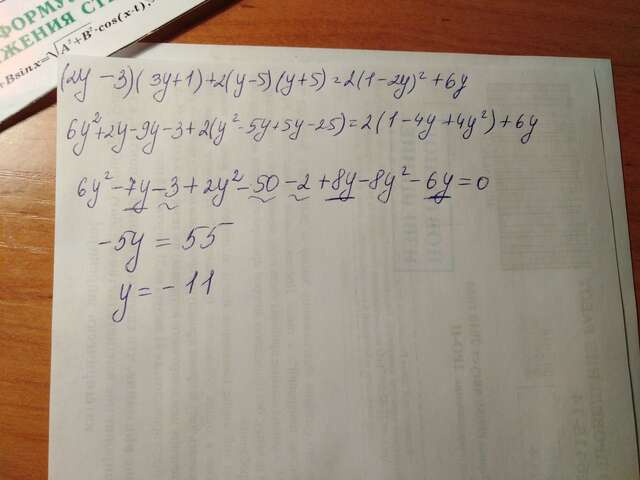 ФОРМУ
ЖЕНИЯ СТЕ
Bsinx=√A²+B²·cos(x-t),
(2y-3)(3y+1)+2(y-5)(y+5)=2(1-2y)²+6y
6y²+2y-9y-3+2(y²-5y+5y-25)=2(1-4y+4y²)+6y
6y²-7y-3+2y²-50-2+8y-8y²-6y=0
-5y=55
y=-11